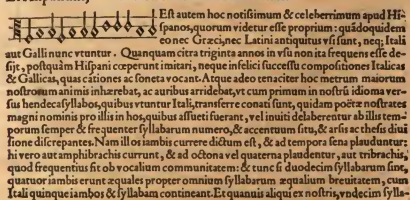 Est autem hoc notissimum & celeberrimum apud Hi-
spanos, quorum videtur esse proprium: quādoquidem
eo nec Græci, nec Latini antiquitus vsi sunt, neq; Itali
aut Galli nunc vtuntur. Quanquam citra triginta annos in vsu non ita frequens esse de-
sijt, postquàm Hispani cœperunt imitari, neque infelici successu compositiones Italicas
& Gallicas, quas cātiones ac soneta vocant. Atque adeo tenaciter hoc metrum maiorum
nostrorum animis inhærebat, ac auribus arridebat, vt cum primum in nostrū idioma ver-
sus hendecasyllabos, quibus vtuntur Itali, transferre conati sunt, quidam poëtæ nostrates
magni nominis pro illis in hos, quibus assueti fuerant, vel inuiti delaberentur ab illis tem-
porum semper & frequenter syllabarum numero, & accentum situ, & arsis ac thesis diui
sione discrepantes. Nam illos iambis currere dictum est, & ad tempora sena plauduntur:
hi vero aut amphibrachis currunt, & ad octona vel quaterna plaudentur, aut tribrachis,
quod frequentius fit ob vocalium communitatem: & tunc si duodecim syllabarum sint,
quatuor iambis erunt æquales propter omnium syllabarum æqualium breuitatem, cum
Itali quinque iambos & syllabam contineant. Et quanuis aliqui ex nostris, vndecim sylla-